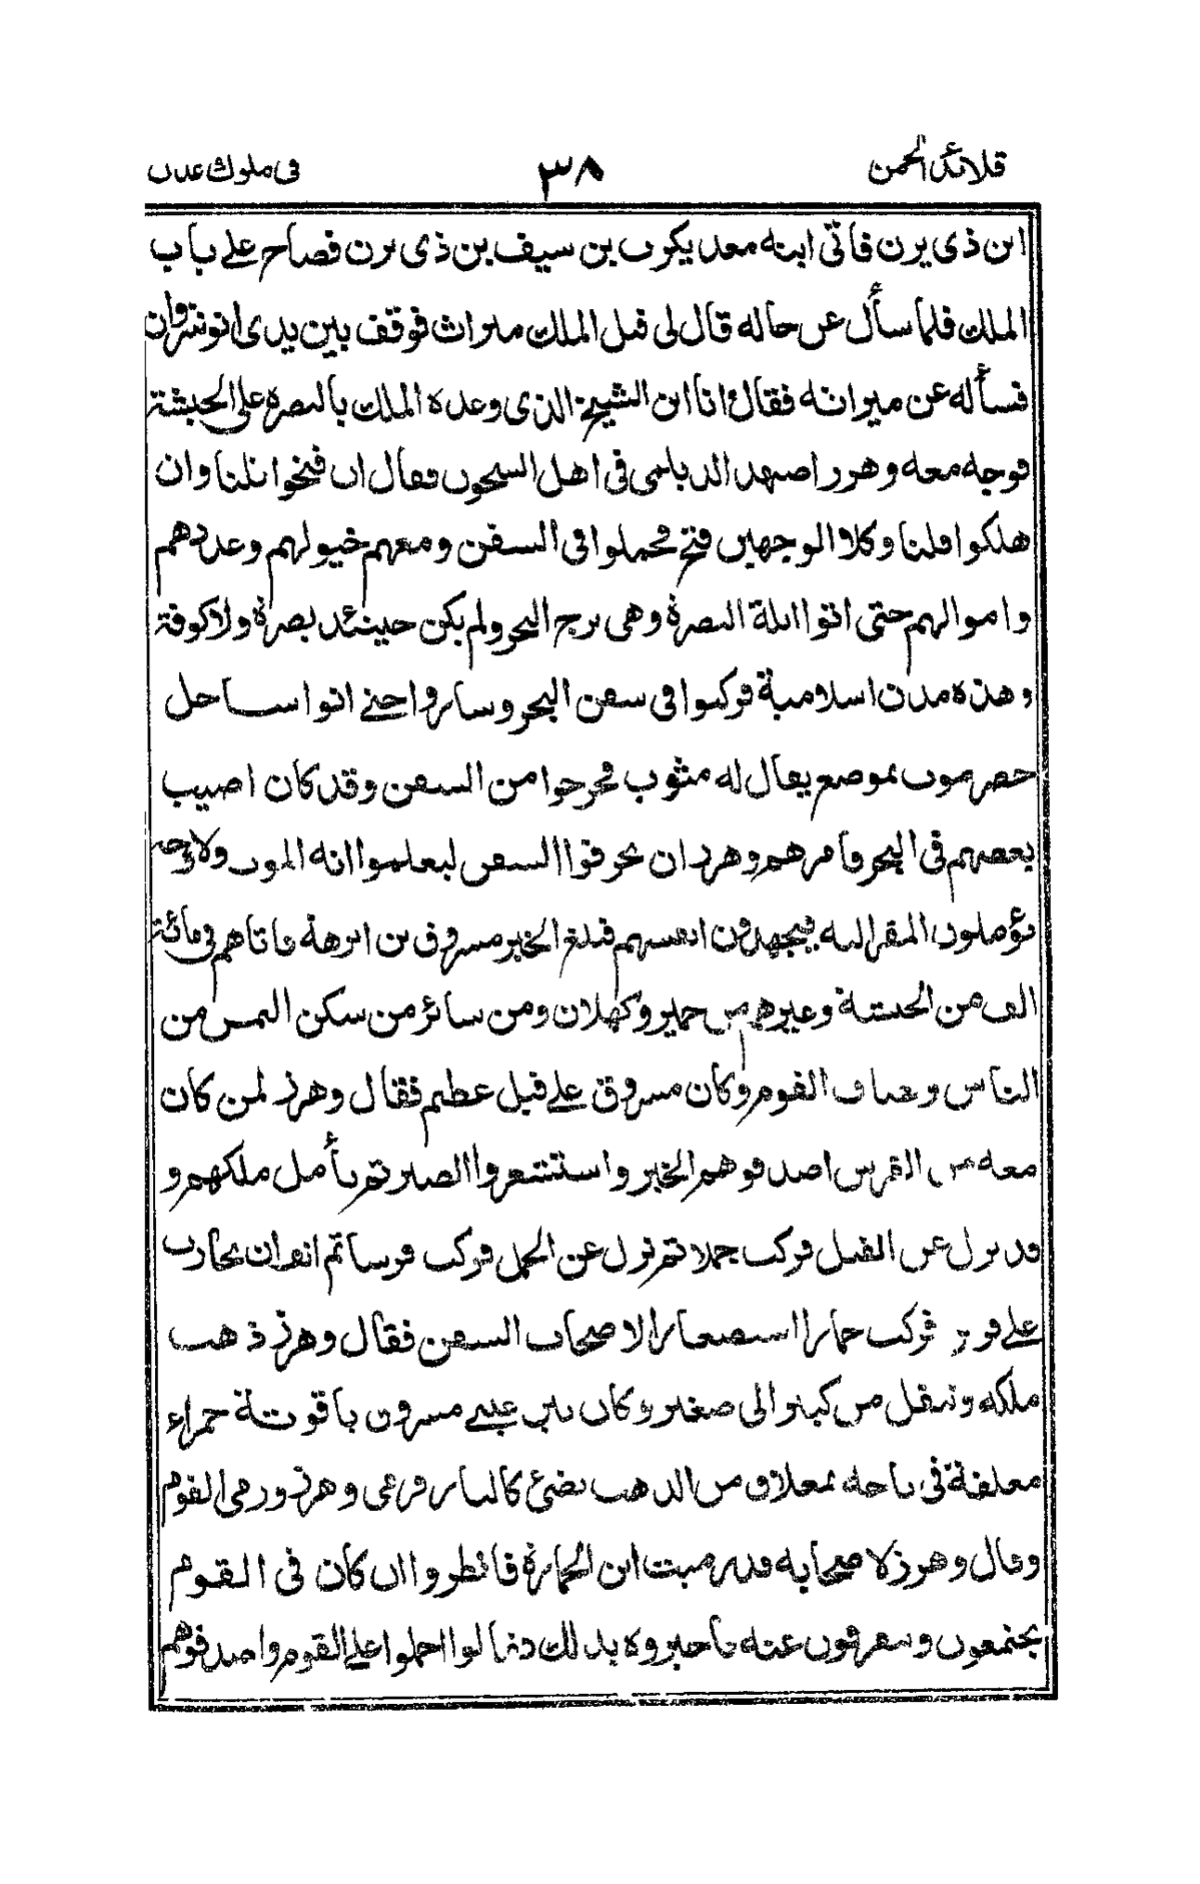 قلائد الجمن ٣٨ في ملوك عدن
ابن ذي يزن فأتى ابنه معديكرب بن سيف بن ذي يزن فصاح على باب
الملك فلما سأل عن حاله قال لي قبل الملك ميراث فوقف بين يدي انوشروان
فسأله عن ميراثه فقال انا ابن الشيخ الذي وعده الملك بالنصرة على الحبشة
فوجه معه وهرز اصبهد الديلمي في اهل السجون فقال ان فتحوا فلنا وان
هلكوا فلنا وكلا الوجهين فتح فحملوا في السفن ومعهم خيولهم وعددهم
واموالهم حتى اتوا ابلة البصرة وهي برج البحر ولم يكن حينئذ بصرة ولا كوفة
وهذه مدن اسلامية فركبوا في سفن البحر وساروا حتى اتوا ساحل
حضرموت بموضع يقال له مثوب فخرجوا من السفن وقد كان اصيب
بعضهم في البحر فأمرهم وهرز ان يحرقوا السفن ليعلموا انه الموت ولا وجه
يؤملون المفر اليه فيجهدون انفسهم فبلغ الخبر مسروق بن ابرهة فاتاهم في مائة
الف من الحبشة وغيرهم من حمير وكهلان ومن سائر من سكن اليمن من
الناس وتصاف القوم وكان مسروق على فيل عظيم فقال وهرز لمن كان
معه من الفرس اصدقوهم الخبر واستشعروا الصبر ثم تأمل ملكهم و
قد نزل عن الفيل فركب جملا ثم نزل عن الجمل فركب فرسا ثم انف ان يحارب
على فرس فركب حمارا استصغارا لاصحاب السفن فقال وهرز ذهب
ملكه وتنقل من كبير الى صغير وكان بين عيني مسروق ياقوتة حمراء
معلقة في تاجه بمعلاق من الذهب تضئ كالنار فرمى وهرز ورمى القوم
وقال وهرز لاصحابه قد رميت ابن الحمارة فانظروا ان كان في القوم
يجتمعون ويتفرقون عنه فأخبروه بذلك فقالوا احملوا على القوم واصدقوهم